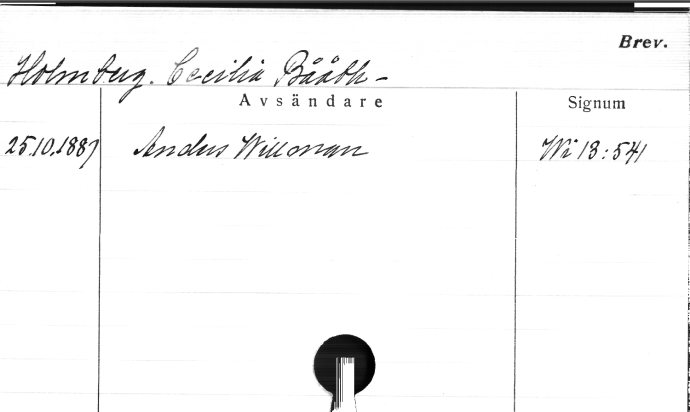 Brev.
Holmberg. Cecilia Bååth-
Avsändare Signum
25.10.1887 Anders Willman Wi 13:541